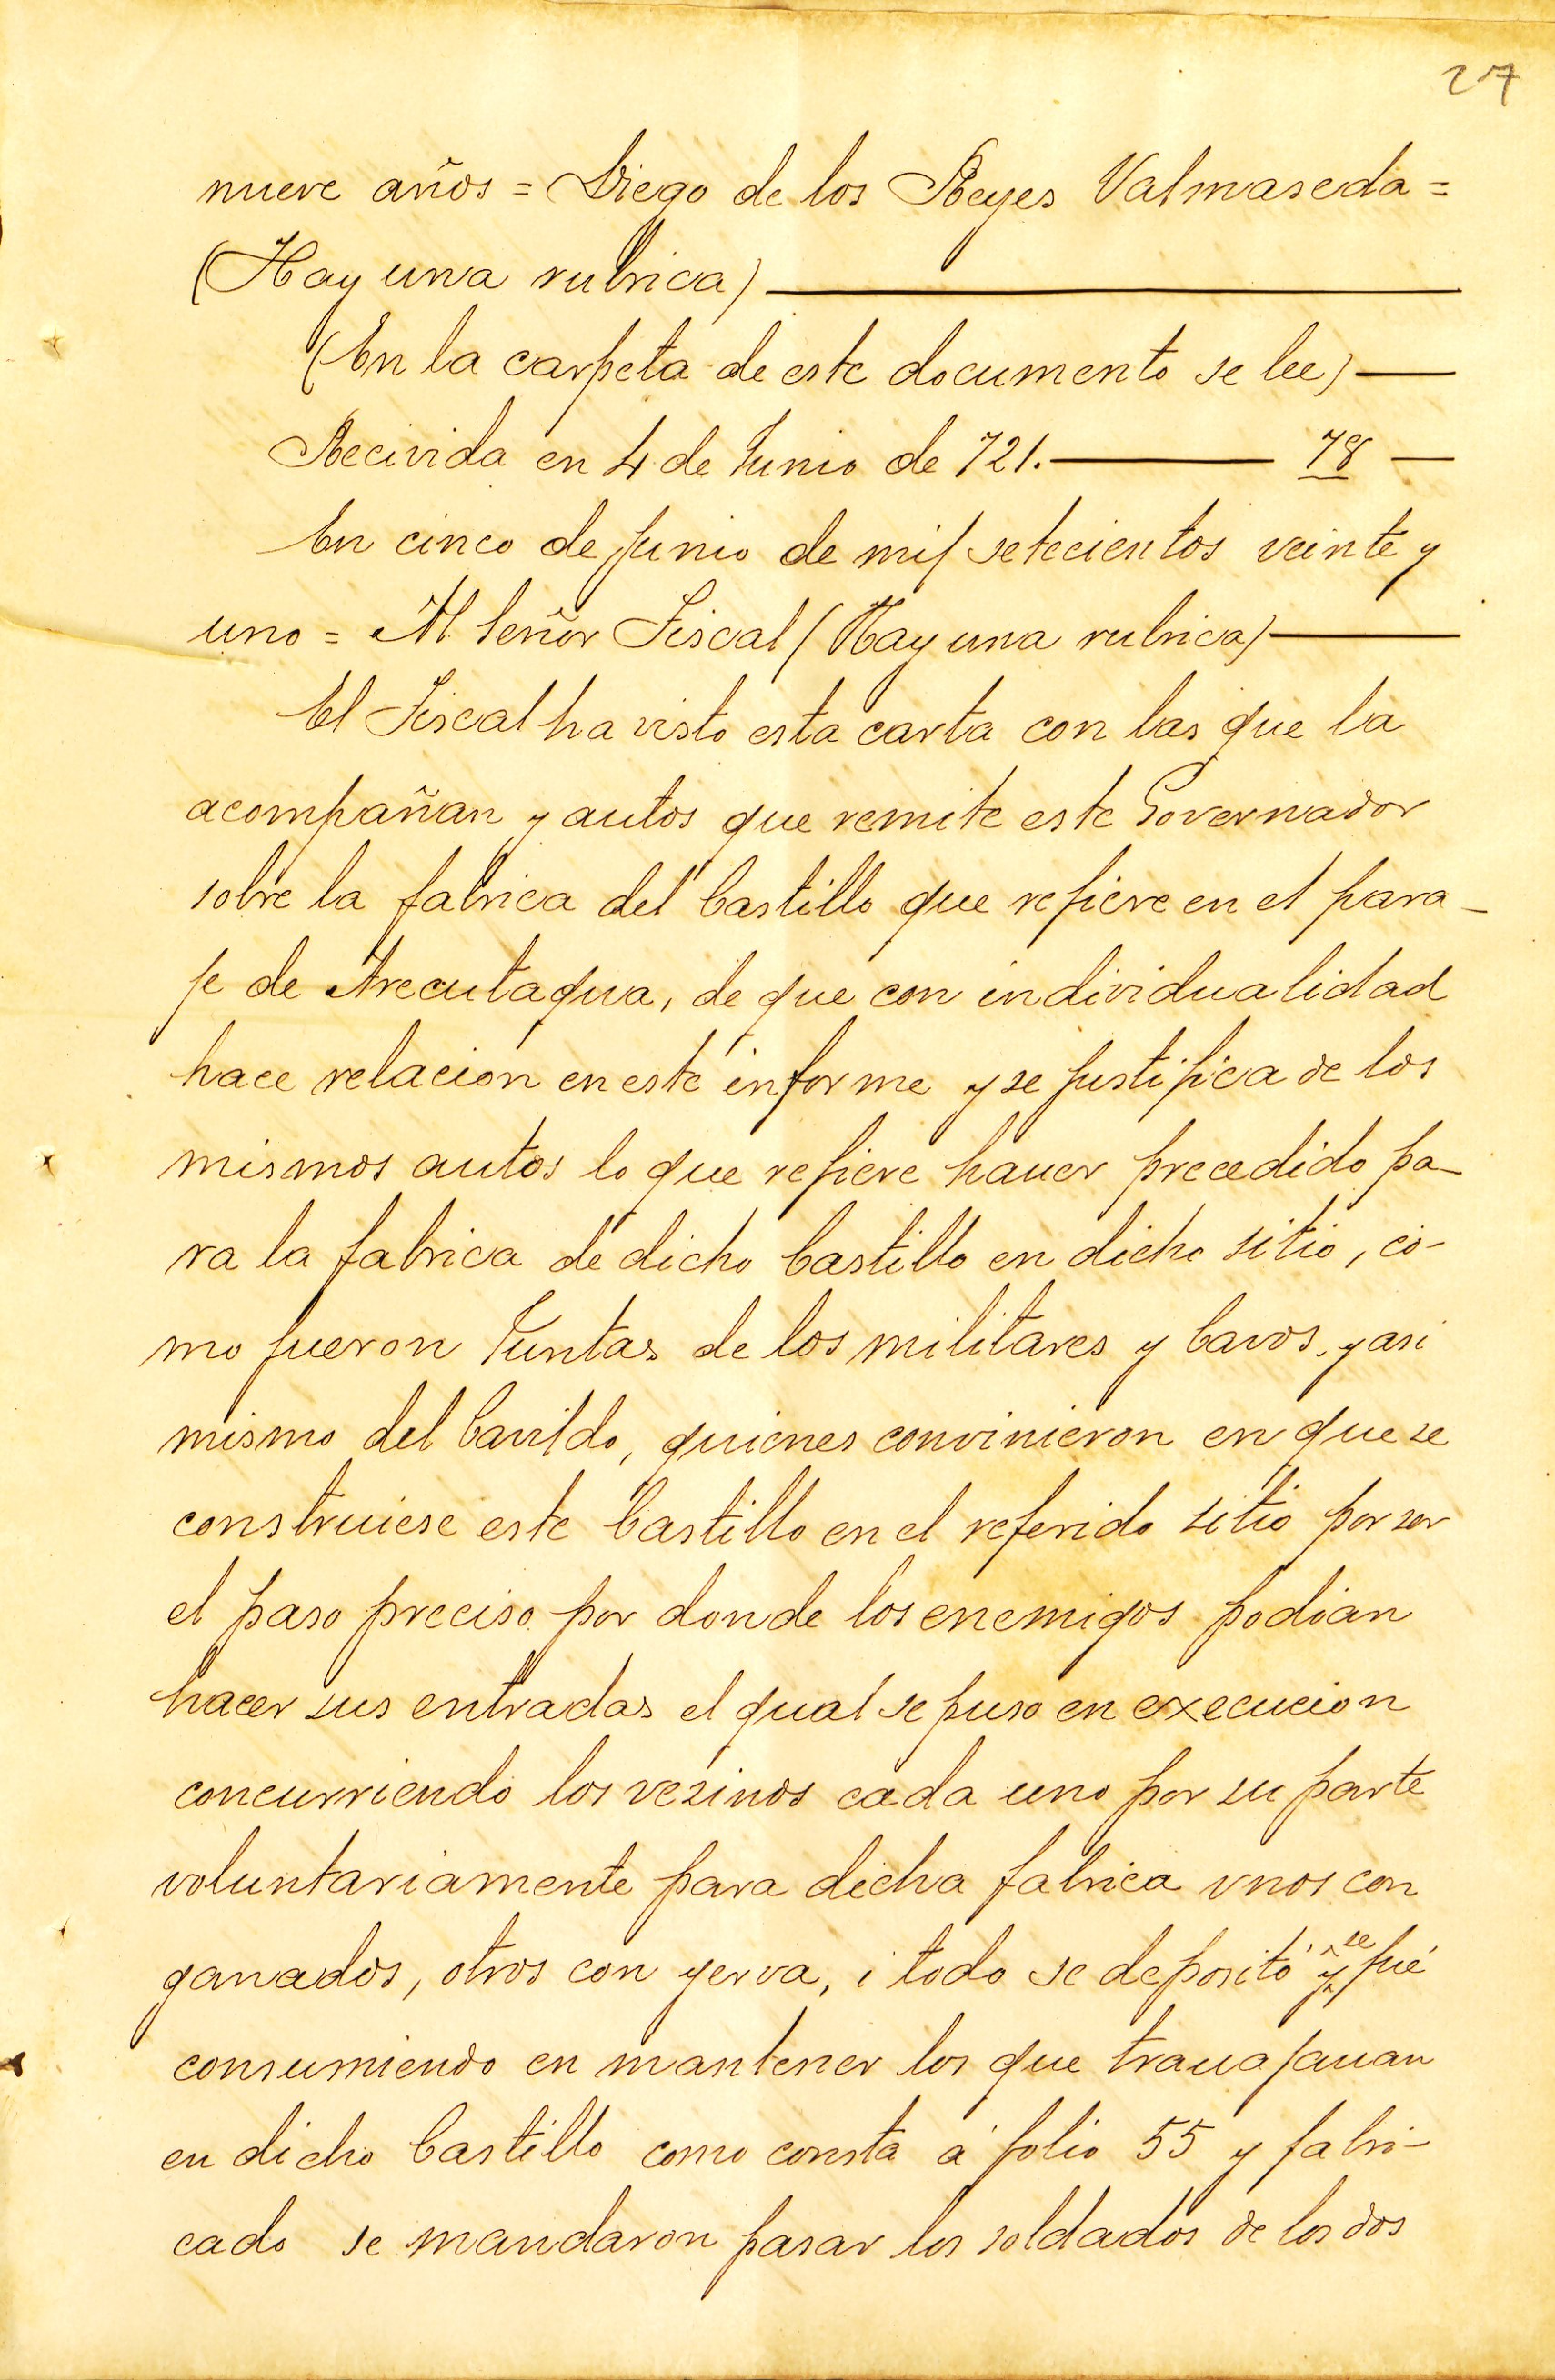 27
nueve años = Diego de los Reyes Valmaseda =
(Hay una rubrica)
(En la carpeta de este documento se lee)
Recivida en 4 de Junio de 721. 78
En cinco de Junio de mil setecientos veinte y
uno = Al Señor Fiscal (Hay una rubrica)
El Fiscal ha visto esta carta con las que la
acompañan y autos que remite este Governador
sobre la fabrica del Castillo que refiere en el para-
je de Arecutagua, de que con individualidad
hace relacion en este informe y se justifica de los
mismos autos lo que refiere hauer precedido pa-
ra la fabrica de dicho Castillo en dicho sitio, co-
mo fueron Juntas de los militares y Cavos, y asi
mismo del Cavildo, quienes convinieron en que se
construiese este Castillo en el referido sitio por ser
el paso preciso por donde los enemigos podian
hacer sus entradas el qual se puso en execucion
concurriendo los vezinos cada uno por su parte
voluntariamente para dicha fabrica vnos con
ganados, otros con yerva, i todo se depositó y se fué
consumiendo en mantener los que trauajauan
en dicho Castillo como consta á folio 55 y fabri-
cado se mandaron pasar los soldados de los dos